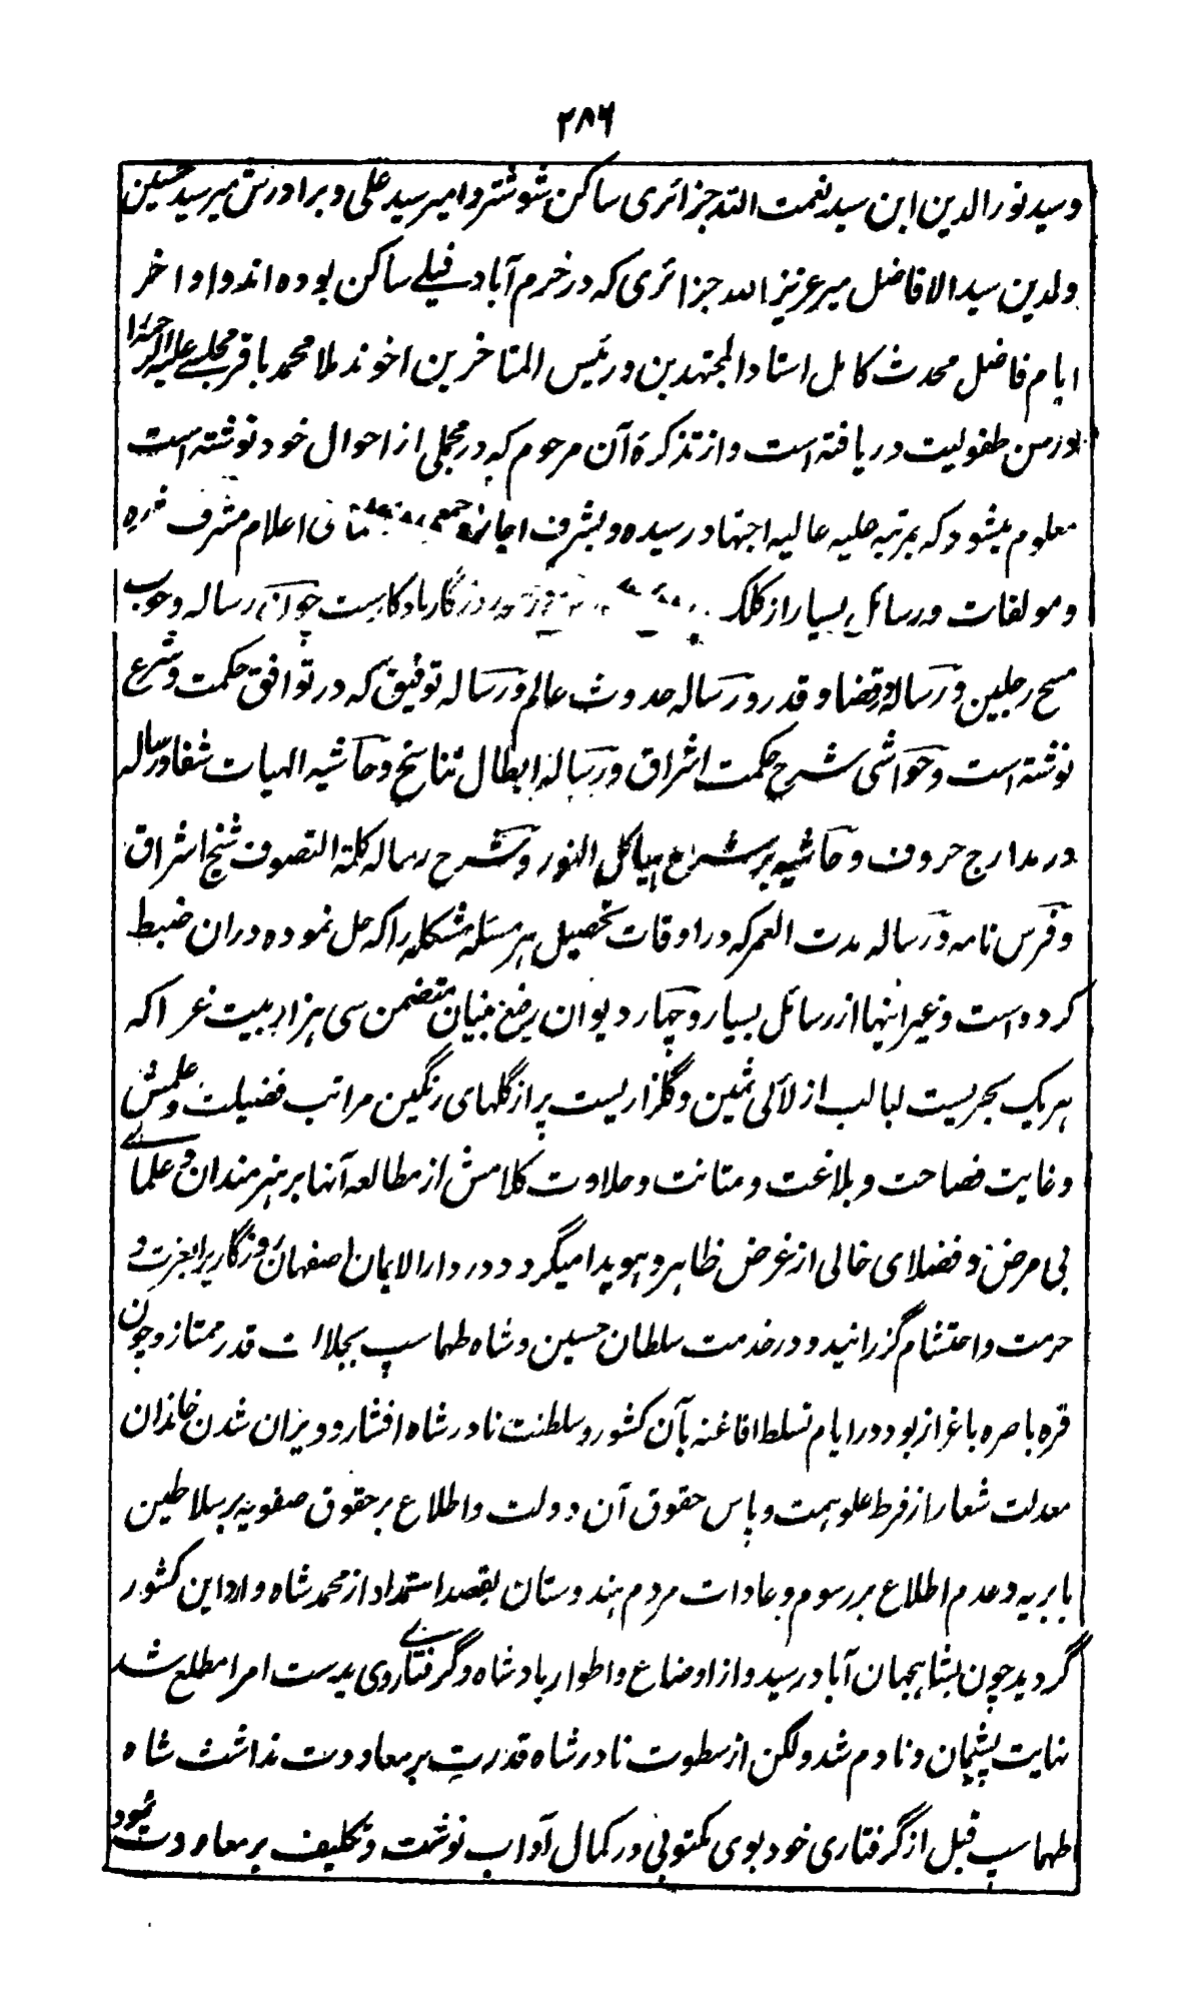 ۲۸۶
و سید نورالدین ابن سید نعمت الله جزائری ساکن شوشتر و امیر سید علی و برادرش میر سید حسین
ولدین سید الافاضل میر عزیز الله جزائری که در خرم آباد فیلے ساکن بوده اند و اواخر
ایام فاضل محدث کامل استاد المجتهدین و رئیس المتاخرین اخوند ملا محمد باقر مجلسے علیه الرحمه را
در سن طفولیت دریافته است و از تذکرۀ آن مرحوم که در مجملی از احوال خود نوشته است
معلوم میشود که بمرتبه علیه عالیه اجتهاد رسیده و بشرف اجازه جمعی اعلام مشرف شده
و مولفات و رسائل بسیار از کلک روزگار یادگارست چون رساله وجوب
مسح رجلین و رساله قضا و قدر و رساله حدوث عالم و رساله توفیق که در توافق حکمت و شرع
نوشته است و حواشی شرح حکمت اشراق و رساله ابطال تناسخ و حاشیه الهیات شفا و رساله
در مدارج حروف و حاشیه بر شرح هیاکل النور و شرح رساله کلمة التصوف شیخ اشراق
و فرس نامه و رساله مدت العمر که در اوقات تحصیل هر مسئله مشکله را که حل نموده دران ضبط
کرده است و غیر اینها از رسائل بسیار و چهار دیوان رفیع بنیان متضمن سی هزار بیت غرا که
هر یک بحریست لبالب از لآلی ثمین و گلزاریست پر از گلهای رنگین مراتب فضیلت و علمش
و غایت فصاحت و بلاغت و متانت و حلاوت کلامش از مطالعه آنها بر هنرمندان و علمائے
بی مرض و فضلای خالی از غرض ظاهر و هویدا میگردد و در دارالایمان اصفهان روزگار را بعزت و
حرمت و احتشام گزرانید و در خدمت سلطان حسین و شاه طهماسپ بجلالت قدر ممتاز و چون
قره باصره باعزاز بود در ایام تسلط افاغنه بآن کشور و سلطنت نادر شاه افشار و ویران شدن خاندان
معدلت شعار از فرط علو همت و پاس حقوق آن دولت و اطلاع بر حقوق صفویه بر سلاطین
بابریه و عدم اطلاع بر رسوم و عادات مردم هندوستان بقصد استمداد از محمد شاه وارد این کشور
گردید چون بشاهجهان آباد رسید و از اوضاع و اطوار بادشاه و گرفتاریے وی بدست امرا مطلع شد
نهایت پشیمان و نادم شد ولکن از سطوت نادر شاه قدرت بر معاودت نداشت شاه
طهماسپ قبل از گرفتاری خود بوی مکتوبی در کمال آداب نوشت و تکلیف بر معاودت نمود